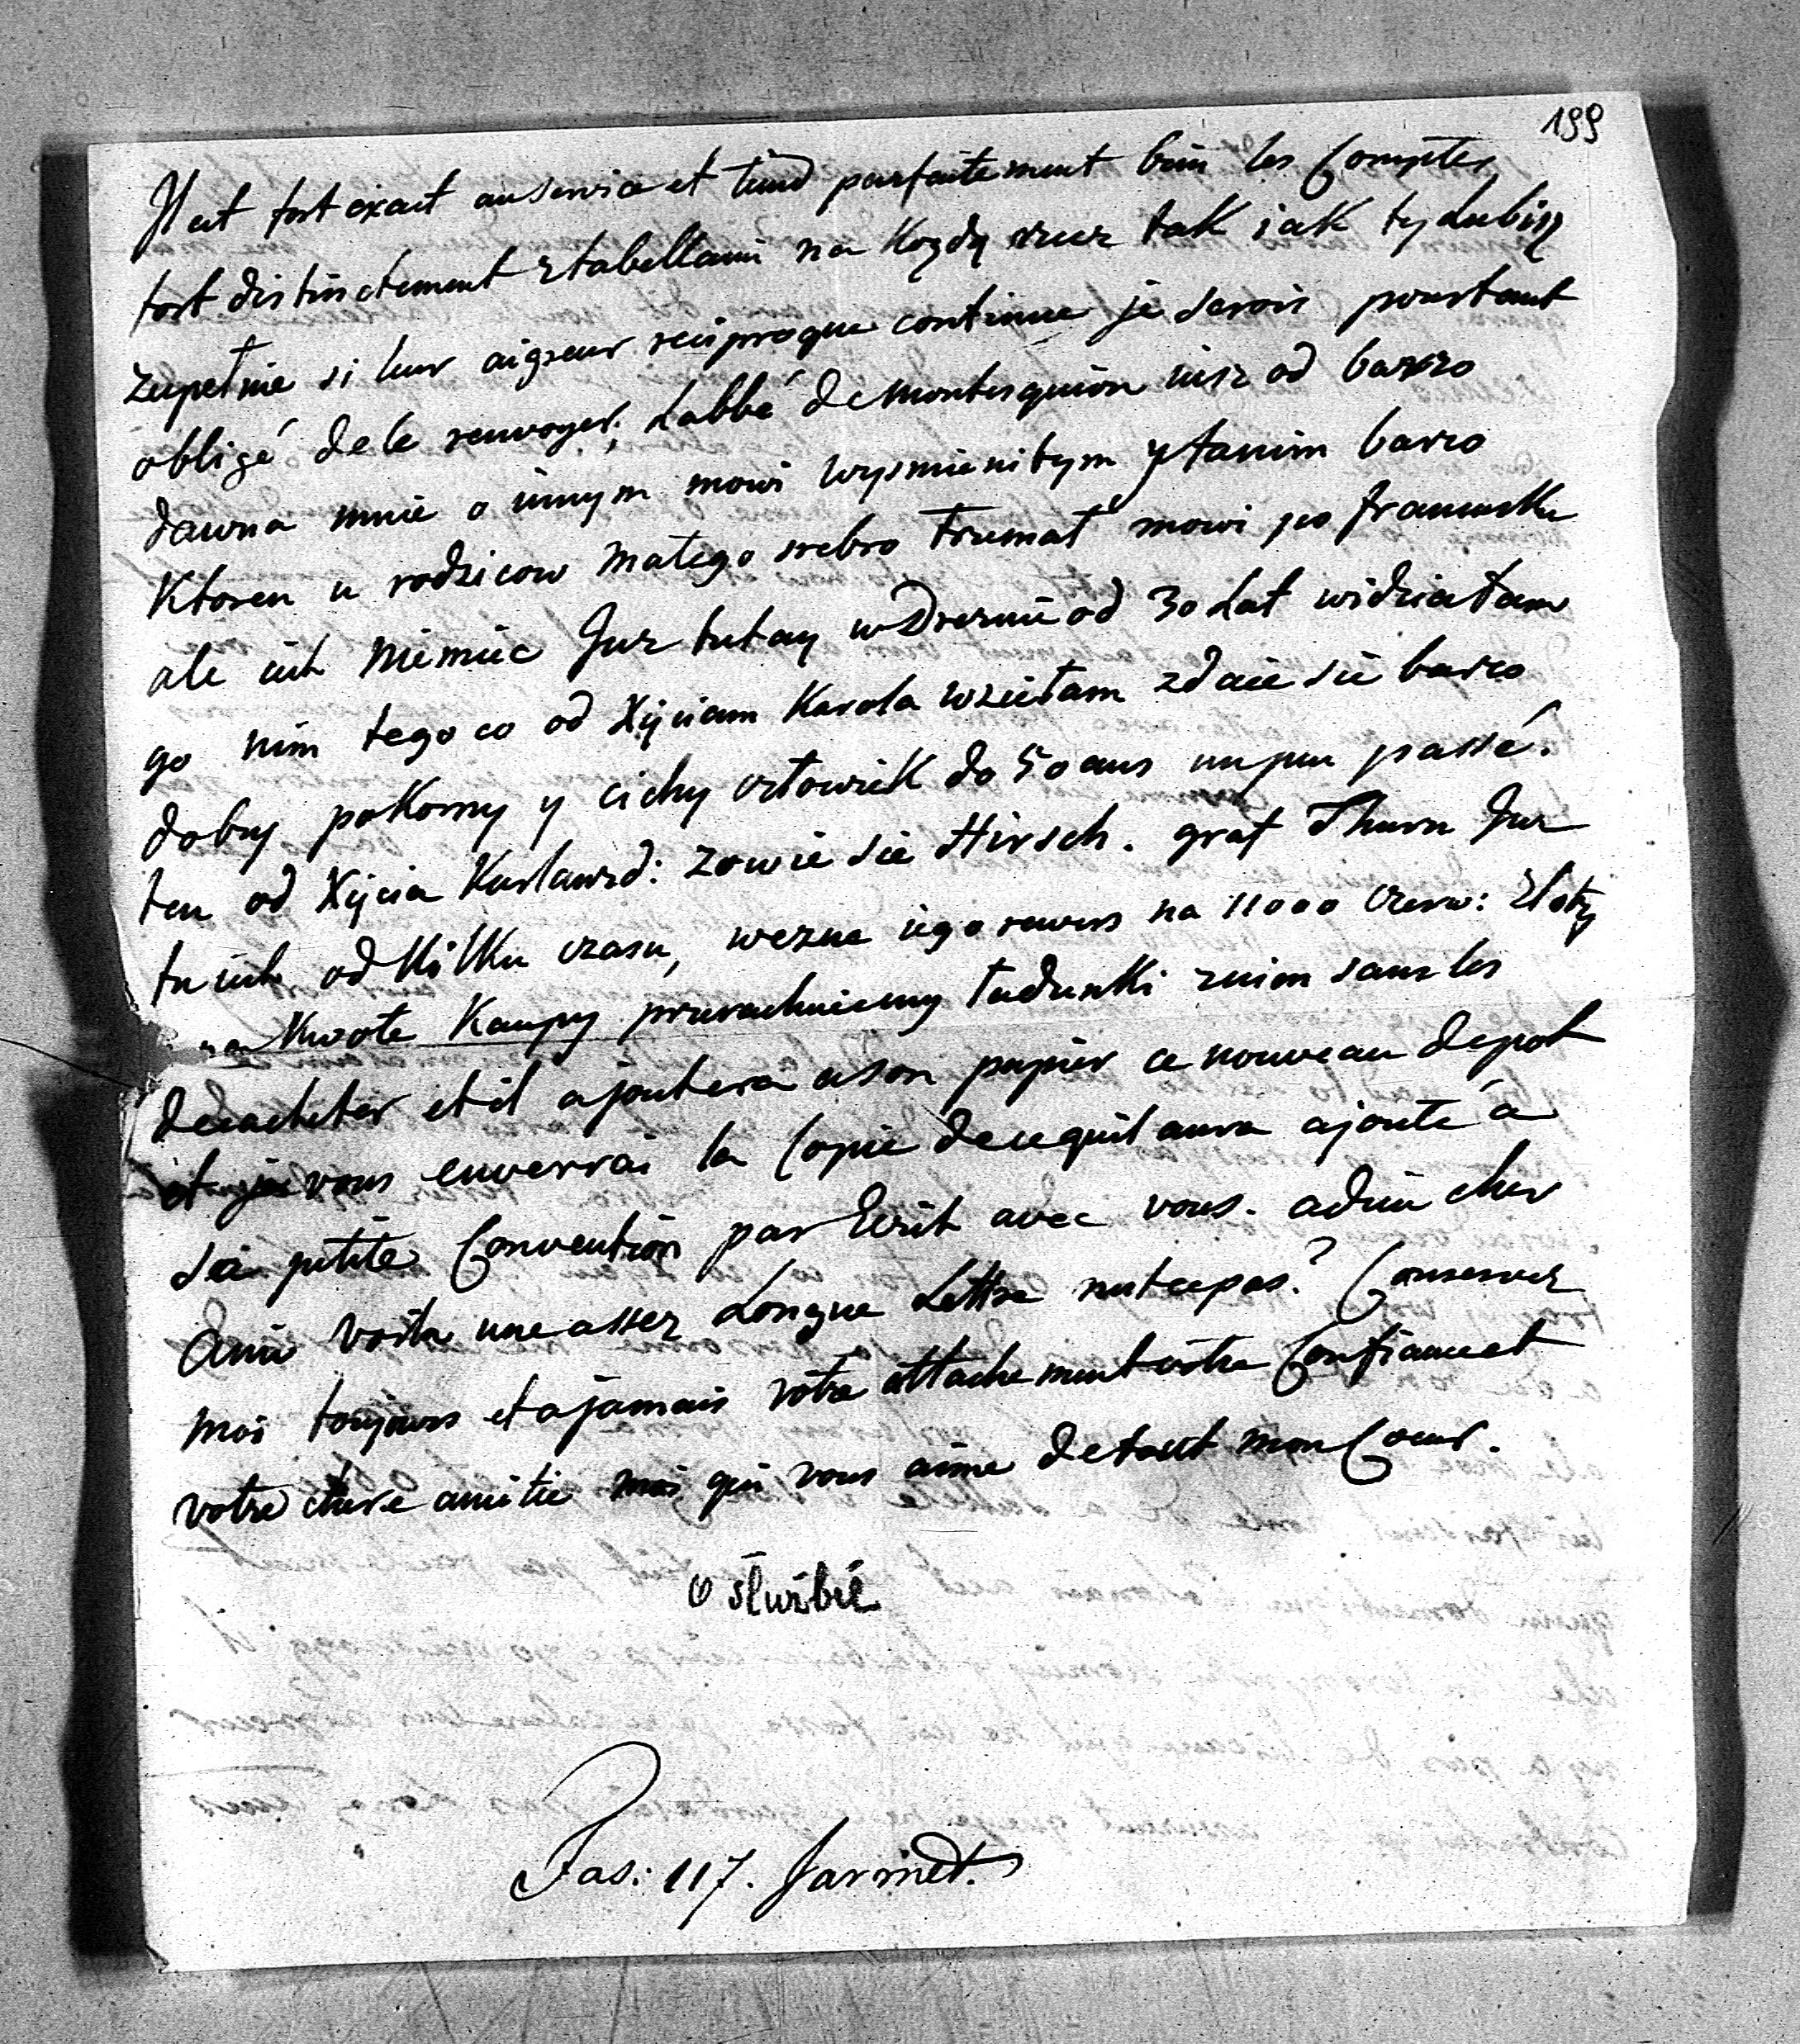 199
Il est fort exact au service et tiend parfaitement bien les Comptes
fort distinctement z tabellami na Kozdą rzecz tak iak ty Lubisz
zupełnie si leur aigreur reciproque continue je serois pourtant
obligé de le renvoyer; Labbé de Montesquion iusz od barzo
dawna mnie o innym mowi wysmienitym y tanim barzo
Ktoren u rodzicow małego srebro trzymał mowi po francusku
ale iest Niemiec Jusz tutay w Dreznie od 30 Lat widziałam
go nim tego co od Xięciam Karola wzięłam zdaie sie barzo
dobry pokorny y cichy człowiek do 50 ans un peu passé.
ten od Xięcia Kurlandz: zowie sie Hirsch. graf Thurn Jusz
tu iest od kilku czasu, wezne iego rewers na 11000 czerw: złoty
na Kwote Kaupy przerachuiemy ładunki z niem sans les
decacheter et il ajoutera a son papier ce nouveau depot
et je vous enverrai la Copie de ce quil aura ajouté á
sa petite Convention par Ecrit avec vous. adieu cher
Ami voila une assez Longue Lettre nest ce pas? Conservez
moi toujours et a jamais votre attachement votre Confiance et
votre chere amitie moi qui vous aime de tout mon Coeur.
o służbie
Fas: 117.